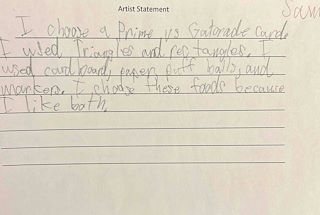 Artist Statement
Sam
I choose a Prime vs Gatorade Card.
I used Triangles and rectangles. I
used card board, paper, puff balls, and
markers. I choose these foods because
I like both.